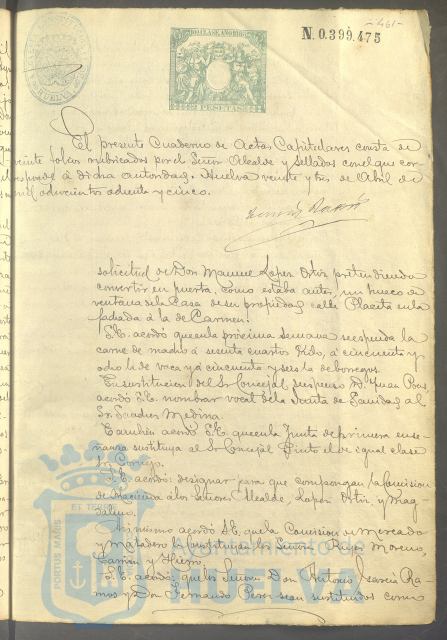 461
N. 0.399.475
PESETAS
El presente Cuaderno de Actas Capitulares consta de
veinte folios rubricados por el Señor Alcalde y sellados con el que cor
responde á dicha autoridad. Huelva veinte y tres de Abril de
mil ochocientos ochenta y cinco.
solicitud de Don Manuel Lopez Ortiz pretendiendo
convertir en puerta, como estaba antes, un hueco de
ventana de la Casa de su propiedad calle Placeta en la
fachada á la de Carmen.
S.E. acordó que en la próxima semana se espenda la
carne de macho á sesenta cuartos kilo, á cincuenta y
ocho la de vaca y á cincuenta y seis la de borregos.
En sustitucion del Sr Concejal suspenso D. Juan
acordó S.E. nombrar vocal de la Junta de Sanidad al
Sr. Sanchez Medina.
Tambien acordó S.E. que en la Junta de primera ense
ñanza sustituya al Sr Concejal el de igual clase
Sr.
S.E. acordó designar para que compongan la Comision
de Hacienda á los Señores Alcalde Lopez Ortiz y Mag
daleno.
Asimismo acordó S.E. que la Comision de Mercado
y Matadero la sustituyan los Señores Reyes Moreno,
y Hierro.
S.E. acordó que los Señores Don Antonio Garcia Ra
mos y Don Fernando Perez sean sustituidos como
PORTUS MARIS ET TERRAE
Ayuntamiento de
HUELVA